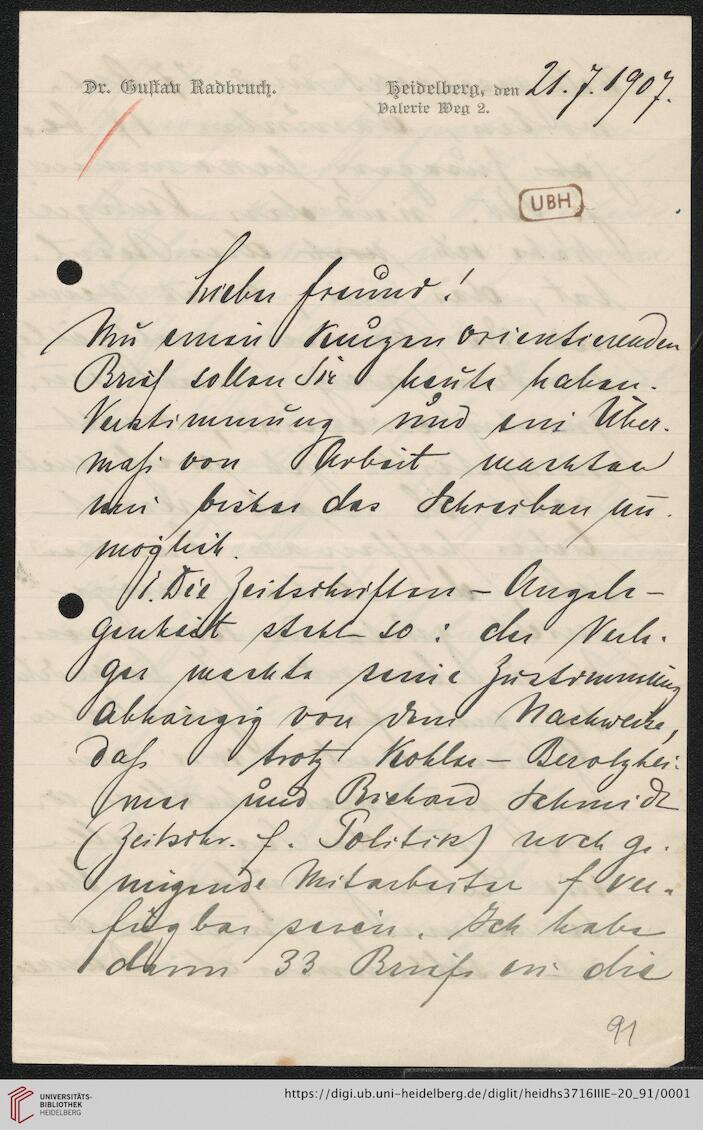 Dr. Gustav Radbruch.
Heidelberg, den 21.7.1907.
Valerie Weg 2.
UBH
Lieber Freund!
Nur einen kurzen orientierenden
Brief sollen Sie heute haben.
Verstimmung und ein Über-
maß von Arbeit machten
mir bisher das Schreiben un-
möglich.
1. Die Zeitschriften-Angele-
genheit steht so: der Verle-
ger machte seine Zustimmung
abhängig von dem Nachweise,
daß trotz Kohler-Berolzhei-
mer und Richard Schmidt
(Zeitschr. f. Politik) noch ge-
nügende Mitarbeiter verfügbar
seien. Ich habe
dann 33 Briefe in die
91
UNIVERSITÄTS-
BIBLIOTHEK
HEIDELBERG
https://digi.ub.uni-heidelberg.de/diglit/heidhs3716IIIE-20_91/0001